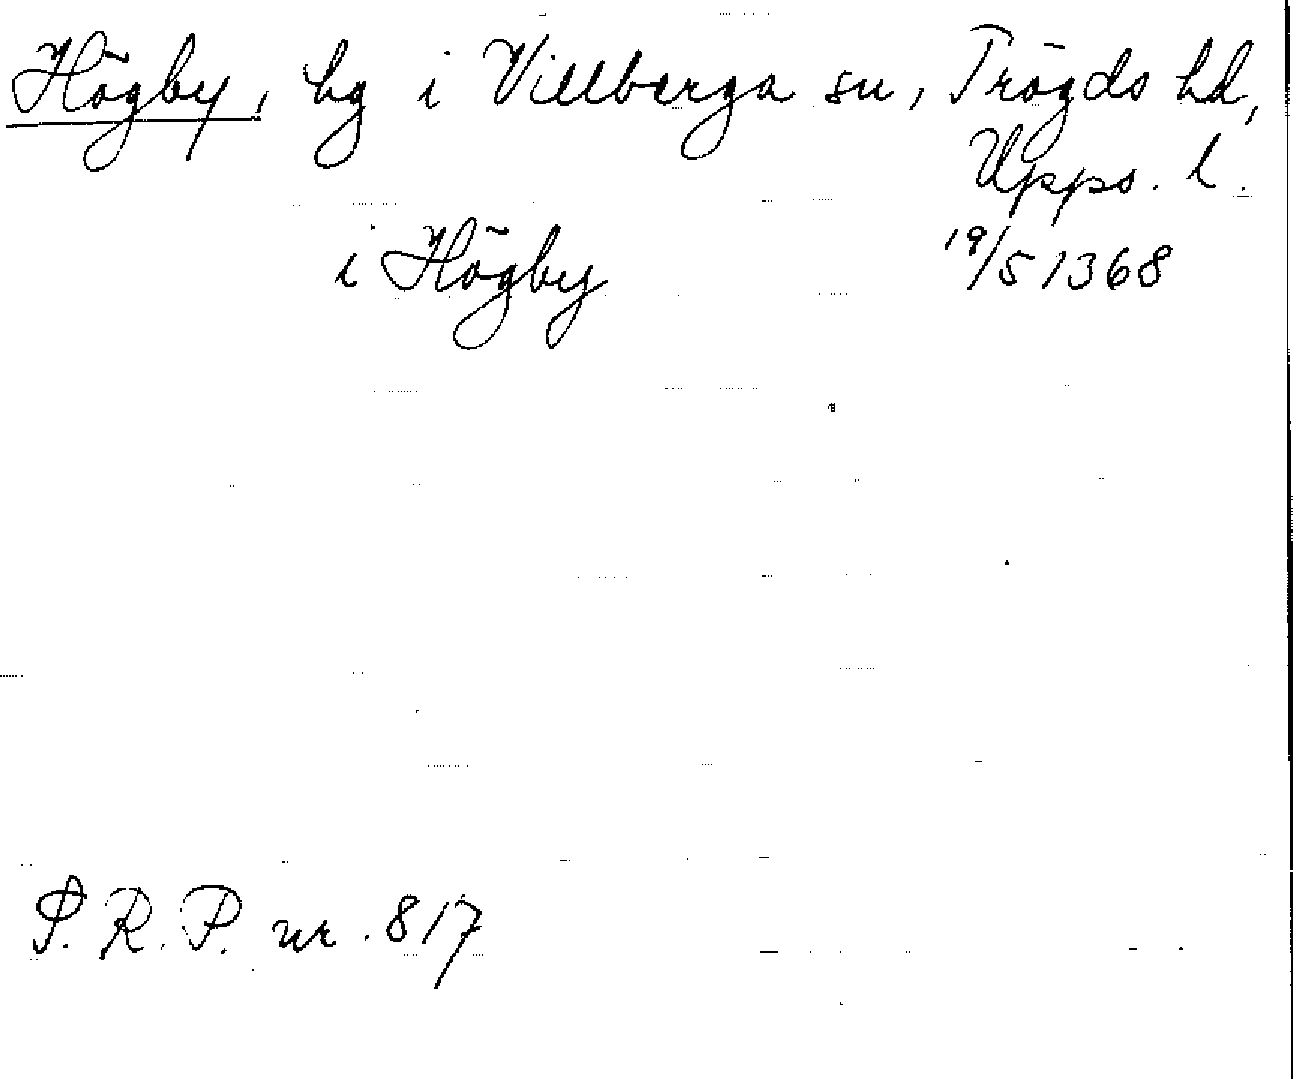 Högby, hg i Villberga sn, Trögds hd,
Upps. l.
i Högby 19/5 1368
S. R. P. nr. 817